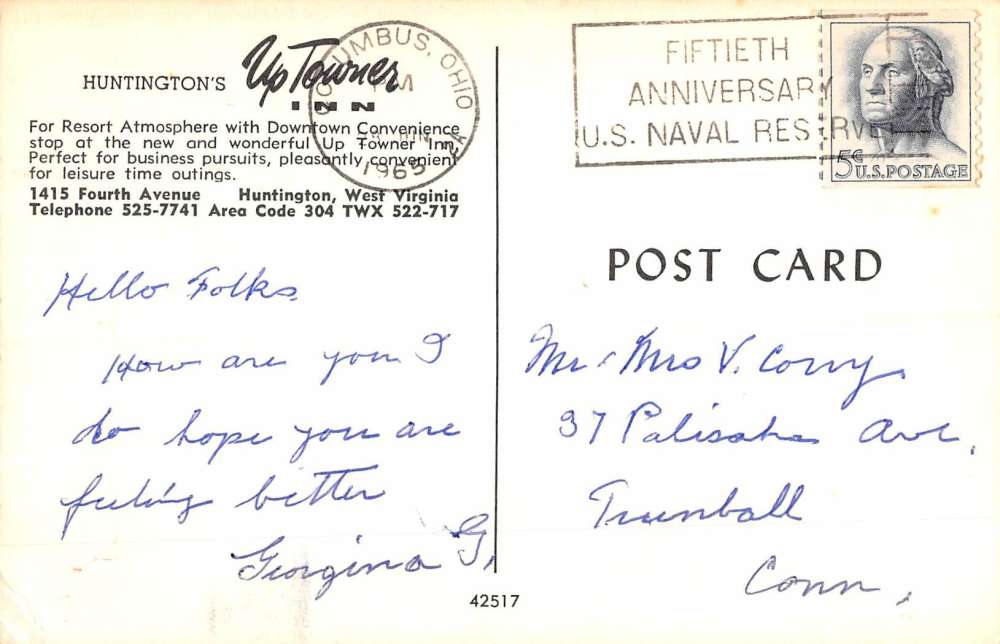 HUNTINGTON'S Up Towner
INN
For Resort Atmosphere with Downtown Convenience
stop at the new and wonderful Up Towner Inn.
Perfect for business pursuits, pleasantly convenient
for leisure time outings.
1415 Fourth Avenue Huntington, West Virginia
Telephone 525-7741 Area Code 304 TWX 522-717
COLUMBUS, OHIO
PM
1965
FIFTIETH
ANNIVERSARY
U.S. NAVAL RESERVE
5¢ U.S. POSTAGE
Hello Folks
How are you I
do hope you are
feeling better
Georgina G.
POST CARD
Mr & Mrs V. Corry
37 Palisade Ave.
Trumball
Conn.
42517